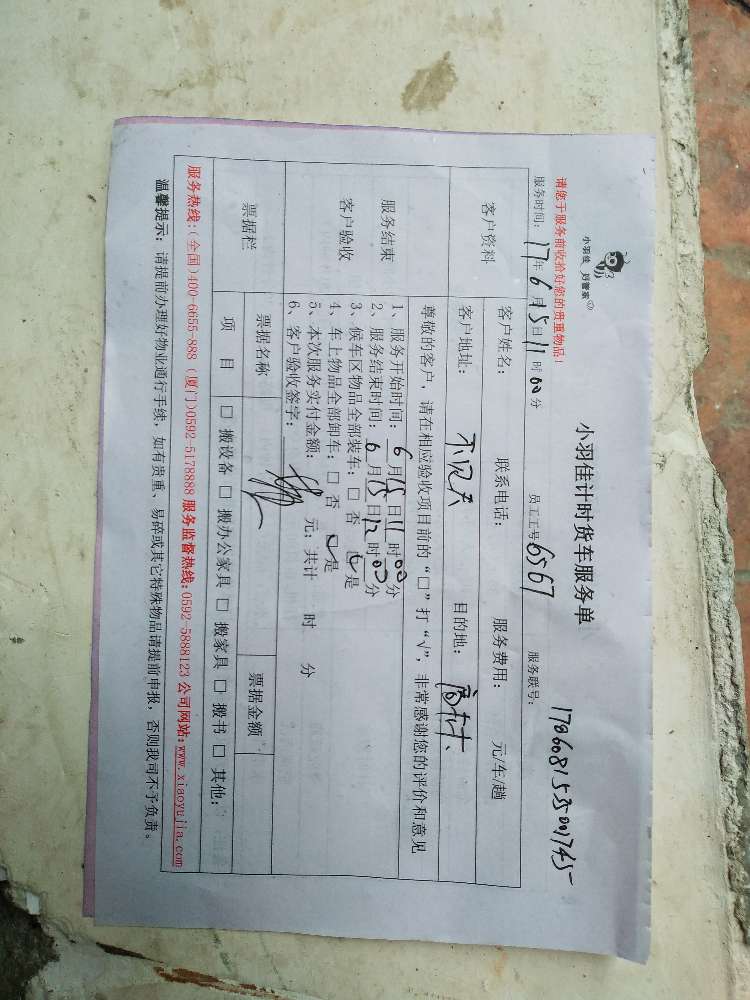 小羽佳 好管家
小羽佳计时货车服务单
请您于服务前收拾好您的贵重物品!
服务时间: 17年6月15日11时00分 员工工号 6567 服务联号: 1706081535001745
客户资料 客户姓名: 联系电话: 服务费用: 元/车/趟
客户地址: 目的地:
尊敬的客户,请在相应验收项目前的“□”打“√”,非常感谢您的评价和意见
服务结束
客户验收
1、服务开始时间: 6月15日11时00分
2、服务结束时间: 6月15日12时00分
3、候车区物品全部装车: □ 否 ☑ 是
4、车上物品全部卸车: □ 否 ☑ 是
5、本次服务实付金额: 元; 共计 时 分
6、客户验收签字:
票据栏 票据名称 票据金额
项 目 □ 搬设备 □ 搬办公家具 □ 搬家具 □ 搬书 □ 其他:
服务热线:(全国)400-6655-888 (厦门)0592-5178888 服务监督热线:0592-5888123 公司网站:www.xiaoyujia.com
温馨提示: 请提前办理好物业通行手续,如有贵重、易碎或其它特殊物品请提前申报,否则我司不予负责。